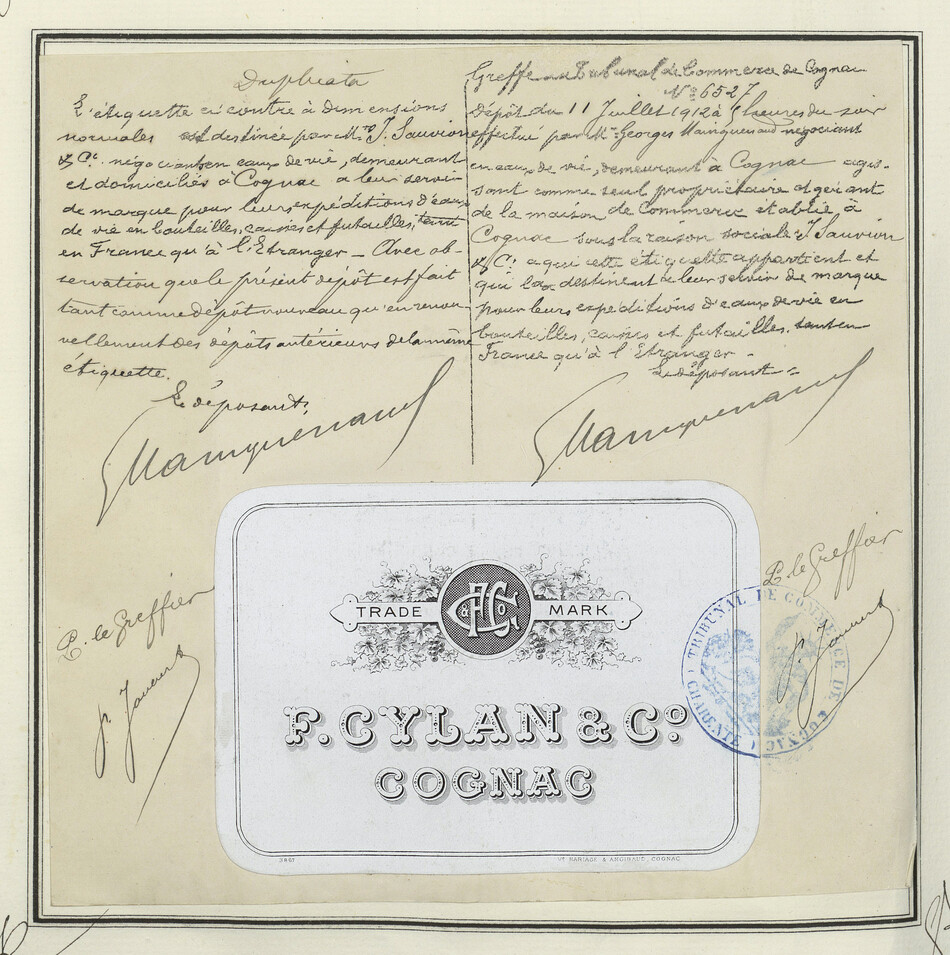 Duplicata
L'étiquette ci contre à dimensions
normales est destinée par Mrs J. Sauvion
& Cie négociants en eaux de vie, demeurant
et domiciliés à Cognac a leur servir
de marque pour leurs expéditions d'eaux
de vie en bouteilles, caisses et futailles, tant
en France qu'à l'Etranger _ Avec ob-
servation que le présent dépôt est fait
tant comme dépôt nouveau qu'en renou-
vellement des dépôts antérieurs de la même
étiquette.
Le déposant,
Mainguenaud
Greffe du Tribunal de Commerce de Cognac
No 6527
Dépôt du 11 Juillet 1912 à heures du soir
effectué par Mr Georges Mainguenaud négociant
en eaux de vie, demeurant à Cognac agis-
sant comme seul propriétaire et gérant
de la maison de Commerce établie à
Cognac sous la raison sociale J Sauvion
& Cie a qui cette étiquette appartient et
qui la destinent a leur servir de marque
pour leurs expéditions d'eaux de vie en
bouteilles, caisses et futailles tant en
France qu'à l'Etranger -
Le déposant -
Mainguenaud
P. le Greffier
P. le Greffier
TRIBUNAL DE COMMERCE DE COGNAC
(CHARENTE)
TRADE & Co MARK
F. CYLAN & Co
COGNAC
3867
Vt RARIAGE & ANGIBAUD, COGNAC